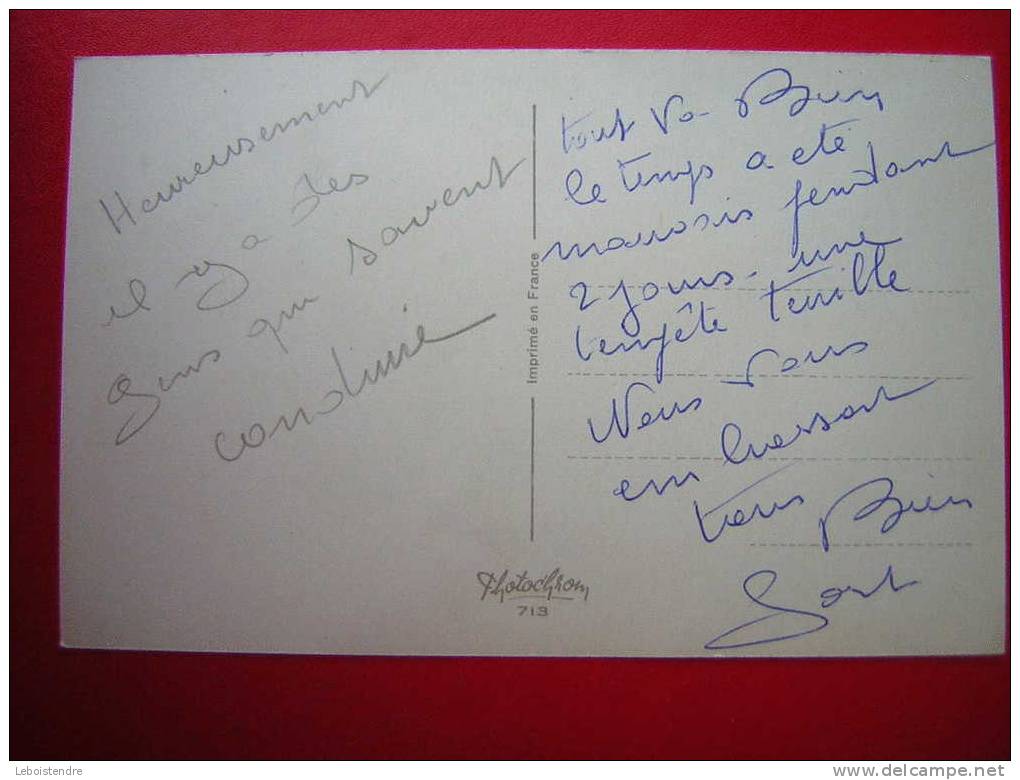 Heureusement
il y a des
gens qui savent
conduire
tout va Bien
le temps a eté
mauvais pendant
2 jours - une
tempête terrible
Nous vous
embrassons
tous Bien
Fort
Imprimé en France
Photochrom
713
Leboistendre
www.delcampe.net